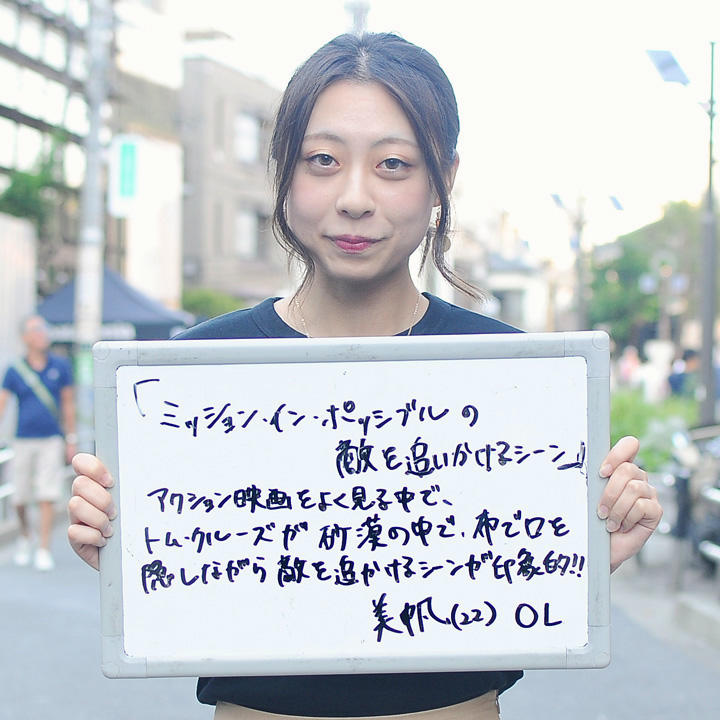 「ミッション・イン・ポッシブルの
敵を追いかけるシーン」
アクション映画をよく見る中で、
トム・クルーズが砂漠の中で、布で口を
隠しながら敵を追かけるシーンが印象的!!
美帆(22) OL